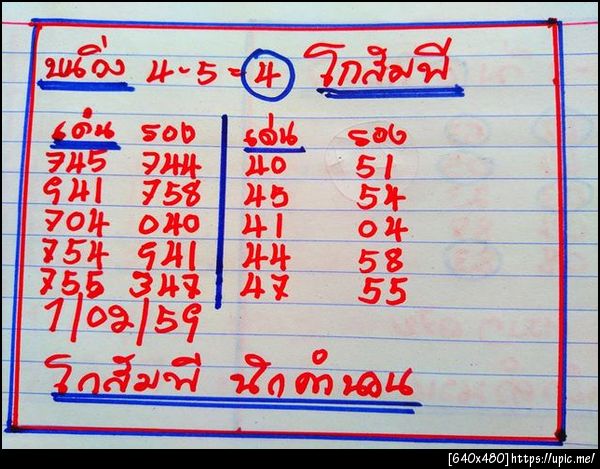 หนึ่ง 4-5=4 โกสัมพี
เด่น รอง เด่น รอง
745 744 40 51
941 758 45 54
704 040 41 04
754 941 44 58
755 347 47 55
1/02/59
โกสัมพี นักคำนวน
[640x480]https://upic.me/